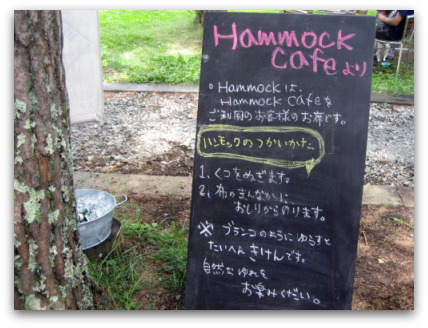 Hammock
Cafeより
○Hammockは、
Hammock Cafeを
ご利用のお客様のお席です。
ハンモックのつかいかた
1. くつをぬぎます。
2. 布のまんなかに
おしりからのります。
※ブランコのようにゆらすと
たいへんきけんです。
自然なゆれを
お楽みください。